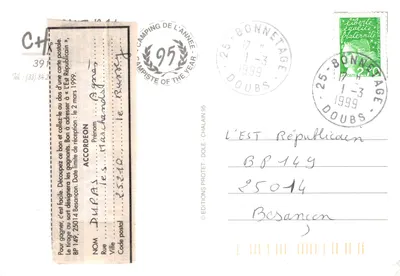 CH
39
CAMPING DE L'ANNÉE
95
CAMPISTE OF THE YEAR
Pour gagner, c'est facile. Découpez ce bon et collez-le au dos d'une carte postale.
Le tirage au sort désignera les gagnants. Bon à adresser à « L'Est Républicain »,
BP 149, 25014 Besançon. Date limite de réception : le 2 mars 1999.
ACCORDEON
NOM DUPAS Prénom Agnès
Rue les Marchands
Ville le Russey
Code postal 25210
© EDITIONS PROTET - DOLE - CHALAIN 95
25 - BONNETAGE
17 -
1 - 3
1999
DOUBS
Liberté
Égalité
Fraternité
25 - BONNETAGE
17 -
1 - 3
1999
DOUBS
L'EST Républicain
BP 149
25014
Besançon